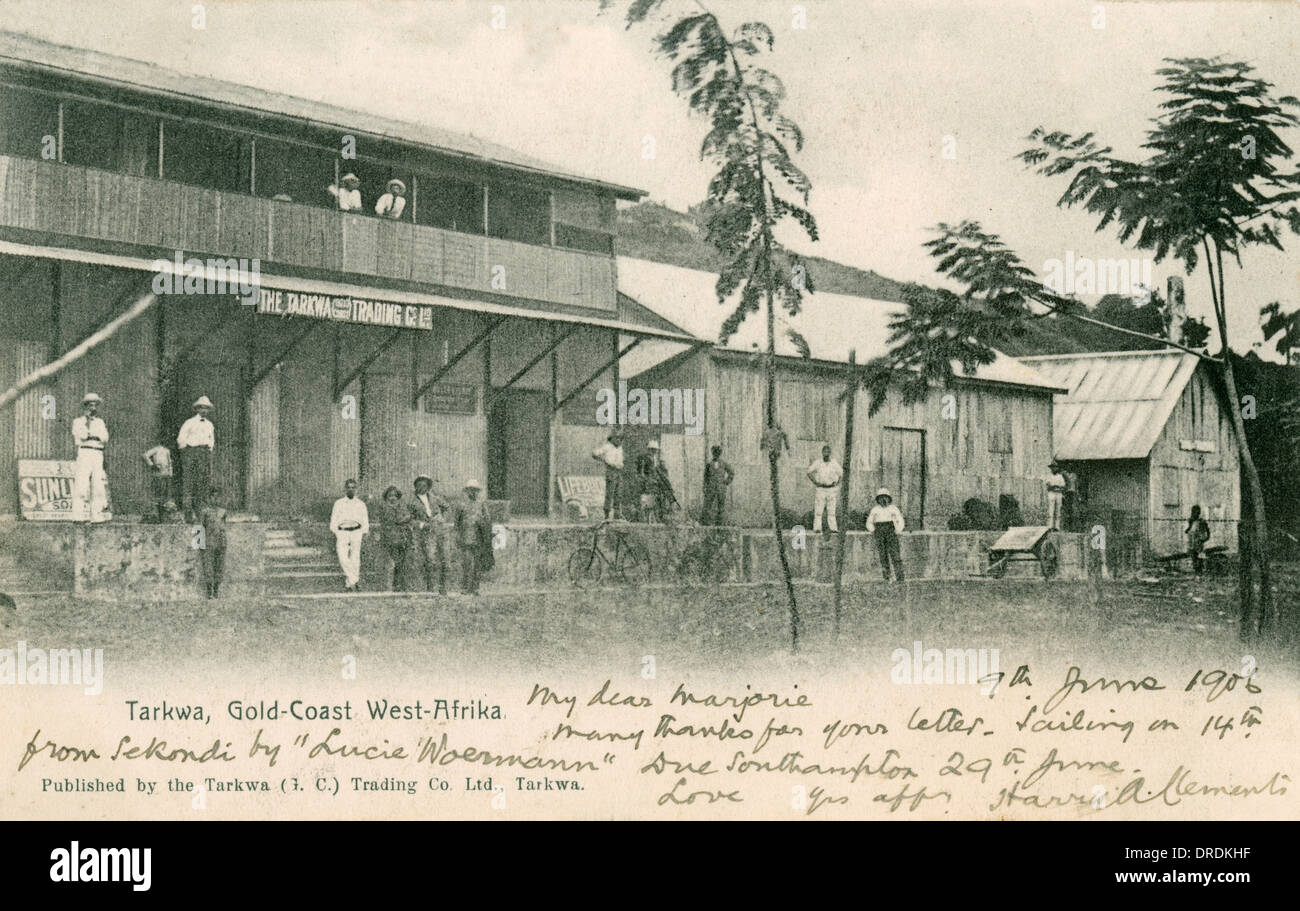 THE TARKWA TRADING Co. Ltd.
SUNL
SOAP
Tarkwa, Gold-Coast West-Afrika.
9th June 1906
My dear Marjorie
Many thanks for your letter - Sailing on 14th
from Sekondi by "Lucie Woermann" Due Southampton 29th June.
Published by the Tarkwa (G. C.) Trading Co. Ltd., Tarkwa.
Love Yrs affly Harry A. Clements
alamy
DRDKHF
www.alamy.com